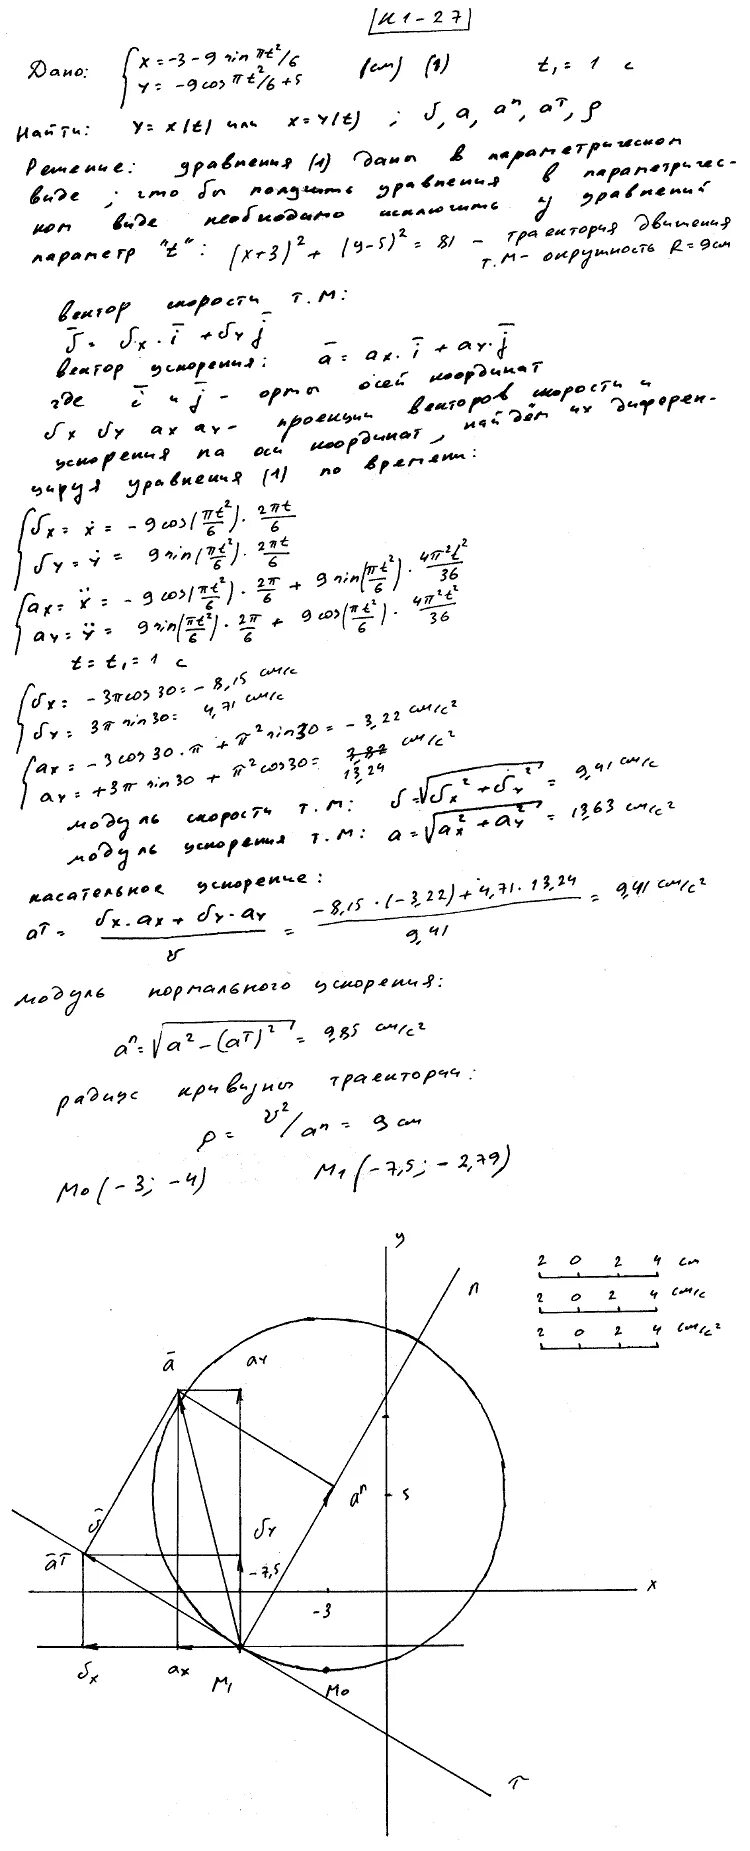 К1-27
Дано: { x = -3 - 9 sin πt²/6 (см) (1) t₁ = 1 с
y = -9 cos πt²/6 + 5
Найти: y = x(t) или x = y(t) ; υ, a, aⁿ, aᵀ, ρ
Решение: уравнения (1) даны в параметрическом
виде ; что бы получить уравнения в параметричес-
ком виде необходимо исключить у уравнений
параметр "t" : (x+3)² + (y-5)² = 81 - траектория движения
т.М - окружность R = 9см
вектор скорости т.М:
υ̅ = υx · i̅ + υy j̅
вектор ускорения: a̅ = ax · i̅ + ay · j̅
где i̅ и j̅ - орты осей координат
υx υy ax ay - проекции векторов скорости и
ускорения на оси координат, найдём их диферен-
цируя уравнения (1) по времени:
{ υx = ẋ = -9 cos(πt²/6) · 2πt/6
υy = ẏ = 9 sin(πt²/6) · 2πt/6
{ ax = ẍ = -9 cos(πt²/6) · 2π/6 + 9 sin(πt²/6) · 4π²t²/36
ay = ÿ = 9 sin(πt²/6) · 2π/6 + 9 cos(πt²/6) · 4π²t²/36
t = t₁ = 1 с
{ υx = -3π cos 30 = -8,15 см/с
υy = 3π sin 30 = 4,71 см/с
{ ax = -3 cos 30 · π + π² sin 30 = -3,22 см/с²
ay = +3π sin 30 + π² cos 30 = 13,24 см/с²
модуль скорости т.М: υ = √(υx² + υy²) = 9,41 см/с
модуль ускорения т.М: a = √(ax² + ay²) = 13,63 см/с²
касательное ускорение:
aᵀ = (υx · ax + υy · ay)/υ = (-8,15 · (-3,22) + 4,71 · 13,24)/9,41 = 9,41 см/с²
модуль нормального ускорения:
aⁿ = √(a² - (aᵀ)²) = 9,85 см/с²
радиус кривизны траектории:
ρ = υ²/aⁿ = 9 см
M₀ (-3; -4) M₁ (-7,5; -2,79)
y
2 0 2 4 см
n
2 0 2 4 см/с
2 0 2 4 см/с²
a̅ ay
aⁿ 5
υ̅ υy
a̅ᵀ -7,5
x
-3
υx ax M₁ M₀
τ